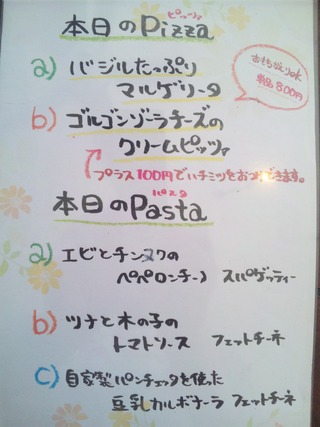 ピッツァ
本日のPizza
a) バジルたっぷり
マルゲリータ
おもちかえりok
単品800円
b) ゴルゴンゾーラチーズの
クリームピッツァ
プラス100円でハチミツをおつけできます。
パスタ
本日のPasta
a) エビとチンヌクの
ペペロンチーノ スパゲッティー
b) ツナと木の子の
トマトソース フェットチーネ
c) 自家製パンチェッタを使った
豆乳カルボナーラ フェットチーネ